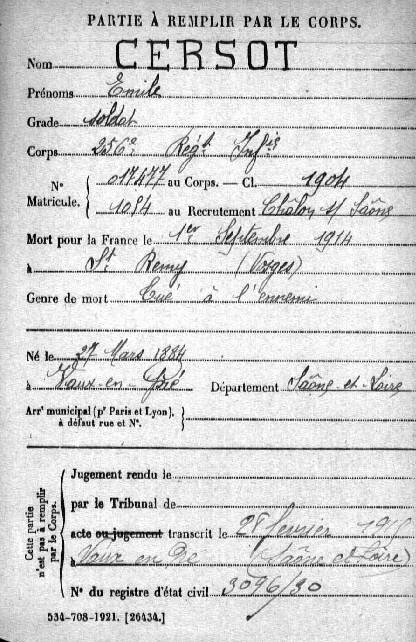 PARTIE À REMPLIR PAR LE CORPS.
Nom CERSOT
Prénoms Emile
Grade soldat
Corps 256e Régt Infie
N° Matricule. { 017477 au Corps. — Cl. 1904
1054 au Recrutement Chalon s/ Saône
Mort pour la France le 1er Septembre 1914
à St Remy (Vosges)
Genre de mort Tué à l'ennemi
Né le 27 Mars 1884
à Vaux-en-Pré Département Saône-et-Loire
Arrt municipal (pr Paris et Lyon),
à défaut rue et N°.
Cette partie n'est pas à remplir par le Corps.
Jugement rendu le
par le Tribunal de
acte ou jugement transcrit le 28 fevrier 191
à Vaux en Pré (Saône et Loire)
N° du registre d'état civil 3096/30
534-708-1921. [26434.]